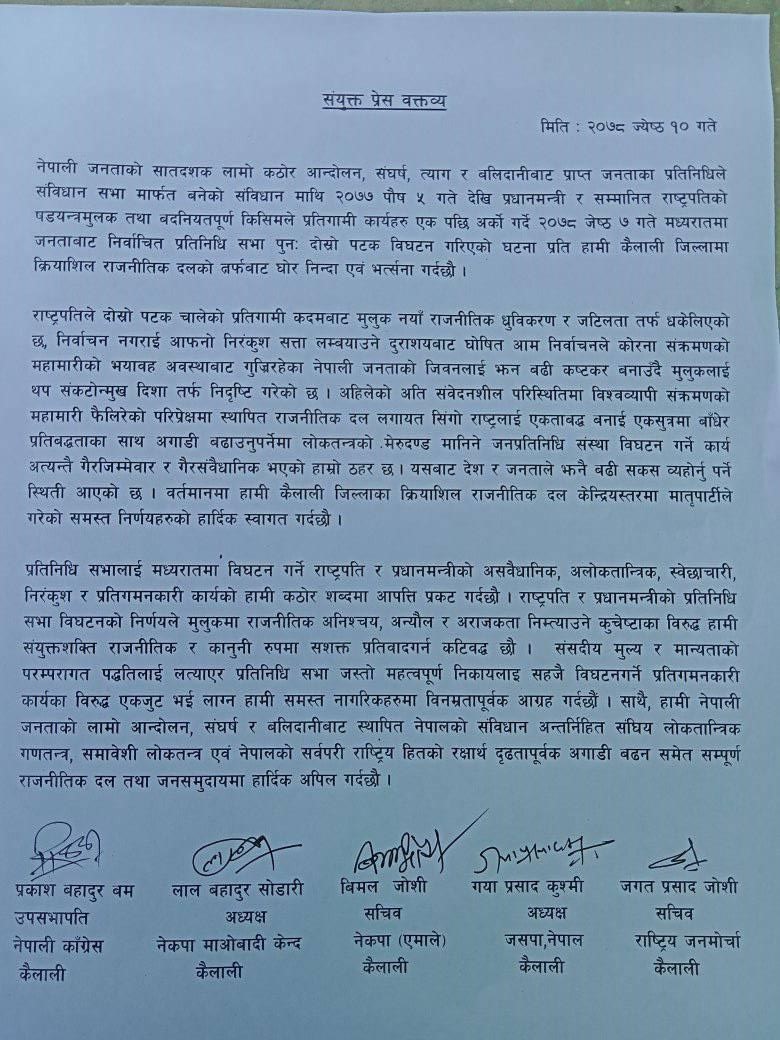 संयुक्त प्रेस वक्तव्य
मिति : २०७८ ज्येष्ठ १० गते
नेपाली जनताको सातदशक लामो कठोर आन्दोलन, संघर्ष, त्याग र बलिदानीबाट प्राप्त जनताका प्रतिनिधिले
संविधान सभा मार्फत बनेको संविधान माथि २०७७ पौष ५ गते देखि प्रधानमन्त्री र सम्मानित राष्ट्रपतिको
षडयन्त्रमुलक तथा वदनियतपूर्ण किसिमले प्रतिगामी कार्यहरु एक पछि अर्को गर्दै २०७८ जेष्ठ ७ गते मध्यरातमा
जनताबाट निर्वाचित प्रतिनिधि सभा पुनः दोस्रो पटक विघटन गरिएको घटना प्रति हामी कैलाली जिल्लामा
क्रियाशिल राजनीतिक दलको तर्फबाट घोर निन्दा एवं भर्त्सना गर्दछौ ।
राष्ट्रपतिले दोस्रो पटक चालेको प्रतिगामी कदमबाट मुलुक नयाँ राजनीतिक ध्रुविकरण र जटिलता तर्फ धकेलिएको
छ, निर्वाचन नगराई आफनो निरंकुश सत्ता लम्वयाउने दुराशयबाट घोषित आम निर्वाचनले कोरना संक्रमणको
महामारीको भयावह अवस्थाबाट गुज्रिरहेका नेपाली जनताको जिवनलाई झन बढी कष्टकर बनाउँदै मुलुकलाई
थप संकटोन्मुख दिशा तर्फ निदृष्टि गरेको छ । अहिलेको अति संवेदनशील परिस्थितिमा विश्वव्यापी संक्रमणको
महामारी फैलिरेको परिप्रेक्षमा स्थापित राजनीतिक दल लगायत सिंगो राष्ट्रलाई एकताबद्ध बनाई एकसुत्रमा बाँधेर
प्रतिबद्धताका साथ अगाडी बढाउनुपर्नेमा लोकतन्त्रको मेरुदण्ड मानिने जनप्रतिनिधि संस्था विघटन गर्ने कार्य
अत्यन्तै गैरजिम्मेवार र गैरसंवैधानिक भएको हाम्रो ठहर छ । यसबाट देश र जनताले झनै बढी सकस व्यहोर्नु पर्ने
स्थिती आएको छ । वर्तमानमा हामी कैलाली जिल्लाका क्रियाशिल राजनीतिक दल केन्द्रियस्तरमा मातृपार्टीले
गरेको समस्त निर्णयहरुको हार्दिक स्वागत गर्दछौ ।
प्रतिनिधि सभालाई मध्यरातमा विघटन गर्ने राष्ट्रपति र प्रधानमन्त्रीको असवैधानिक, अलोकतान्त्रिक, स्वेछाचारी,
निरंकुश र प्रतिगमनकारी कार्यको हामी कठोर शब्दमा आपत्ति प्रकट गर्दछौ । राष्ट्रपति र प्रधानमन्त्रीको प्रतिनिधि
सभा विघटनको निर्णयले मुलुकमा राजनीतिक अनिश्चय, अन्यौल र अराजकता निम्त्याउने कुचेष्टाका विरुद्ध हामी
संयुक्तशक्ति राजनीतिक र कानुनी रुपमा सशक्त प्रतिवादगर्न कटिवद्ध छौ । संसदीय मुल्य र मान्यताको
परम्परागत पद्धतिलाई लत्याएर प्रतिनिधि सभा जस्तो महत्वपूर्ण निकायलाइ सहजै विघटनगर्ने प्रतिगमनकारी
कार्यका विरुद्ध एकजुट भई लाग्न हामी समस्त नागरिकहरुमा विनम्रतापूर्वक आग्रह गर्दछौं । साथै, हामी नेपाली
जनताको लामो आन्दोलन, संघर्ष र बलिदानीबाट स्थापित नेपालको संविधान अन्तर्निहित संघिय लोकतान्त्रिक
गणतन्त्र, समावेशी लोकतन्त्र एवं नेपालको सर्वपरी राष्ट्रिय हितको रक्षार्थ दृढतापूर्वक अगाडी बढन समेत सम्पूर्ण
राजनीतिक दल तथा जनसमुदायमा हार्दिक अपिल गर्दछौ ।
प्रकाश बहादुर बम लाल बहादुर सोडारी बिमल जोशी गया प्रसाद कुश्मी जगत प्रसाद जोशी
उपसभापति अध्यक्ष सचिव अध्यक्ष सचिव
नेपाली काँग्रेस नेकपा माओबादी केन्द नेकपा (एमाले) जसपा,नेपाल राष्ट्रिय जनमोर्चा
कैलाली कैलाली कैलाली कैलाली कैलाली